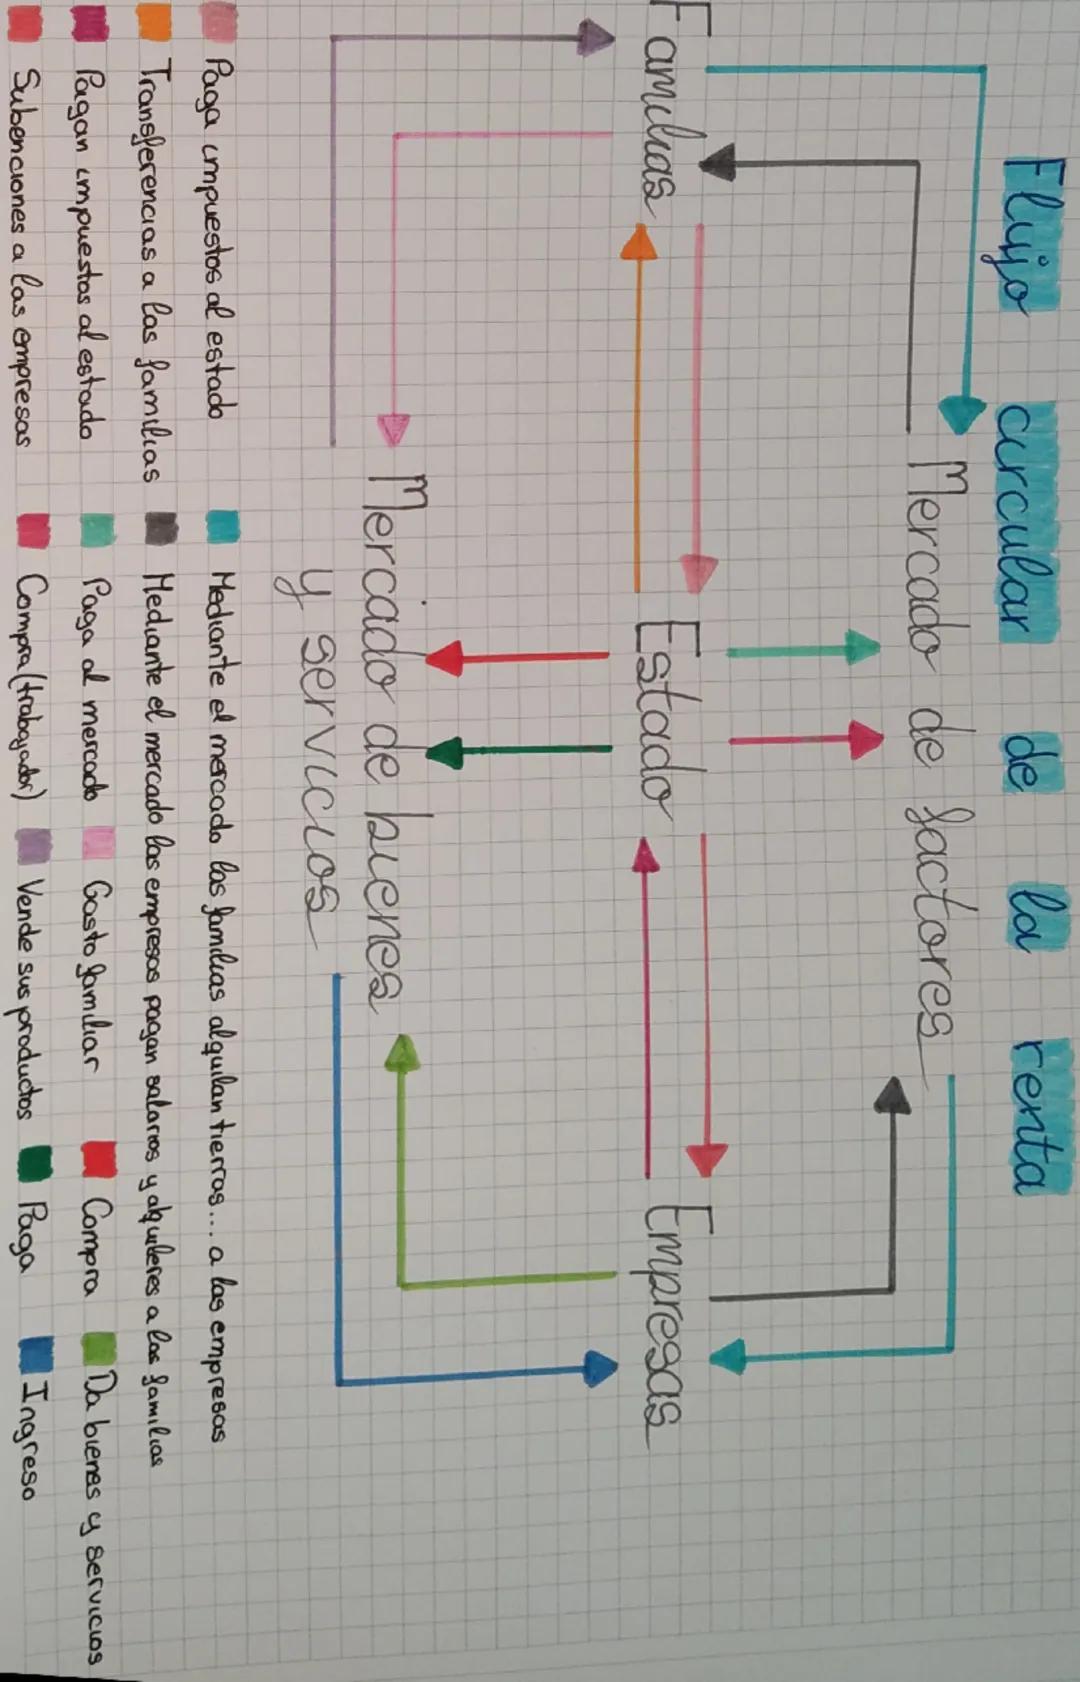 Flujo circular de la renta
Mercado de factores
Familias Estado Empresas
Mercado de bienes
y servicios
Paga impuestos al estado
Mediante el mercado las familias alquilan tierras... a las empresas
Transferencias a las familias
Mediante el mercado las empresas pagan salarios y alquileres a las familias
Pagan impuestos al estado
Paga al mercado
Gasto familiar
Compra
Da bienes y servicios
Subenciones a las empresas
Compra (trabajador)
Vende sus productos
Paga
Ingreso